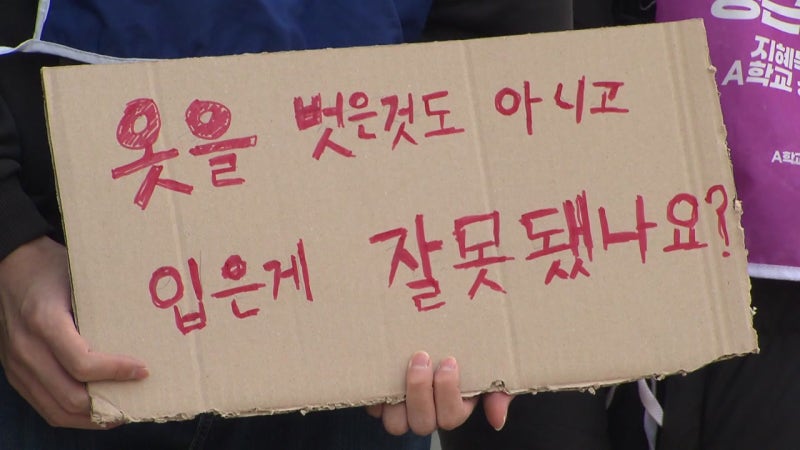 옷을 벗은것도 아니고
입은게 잘못됐나요?
지혜
A학교
A학교